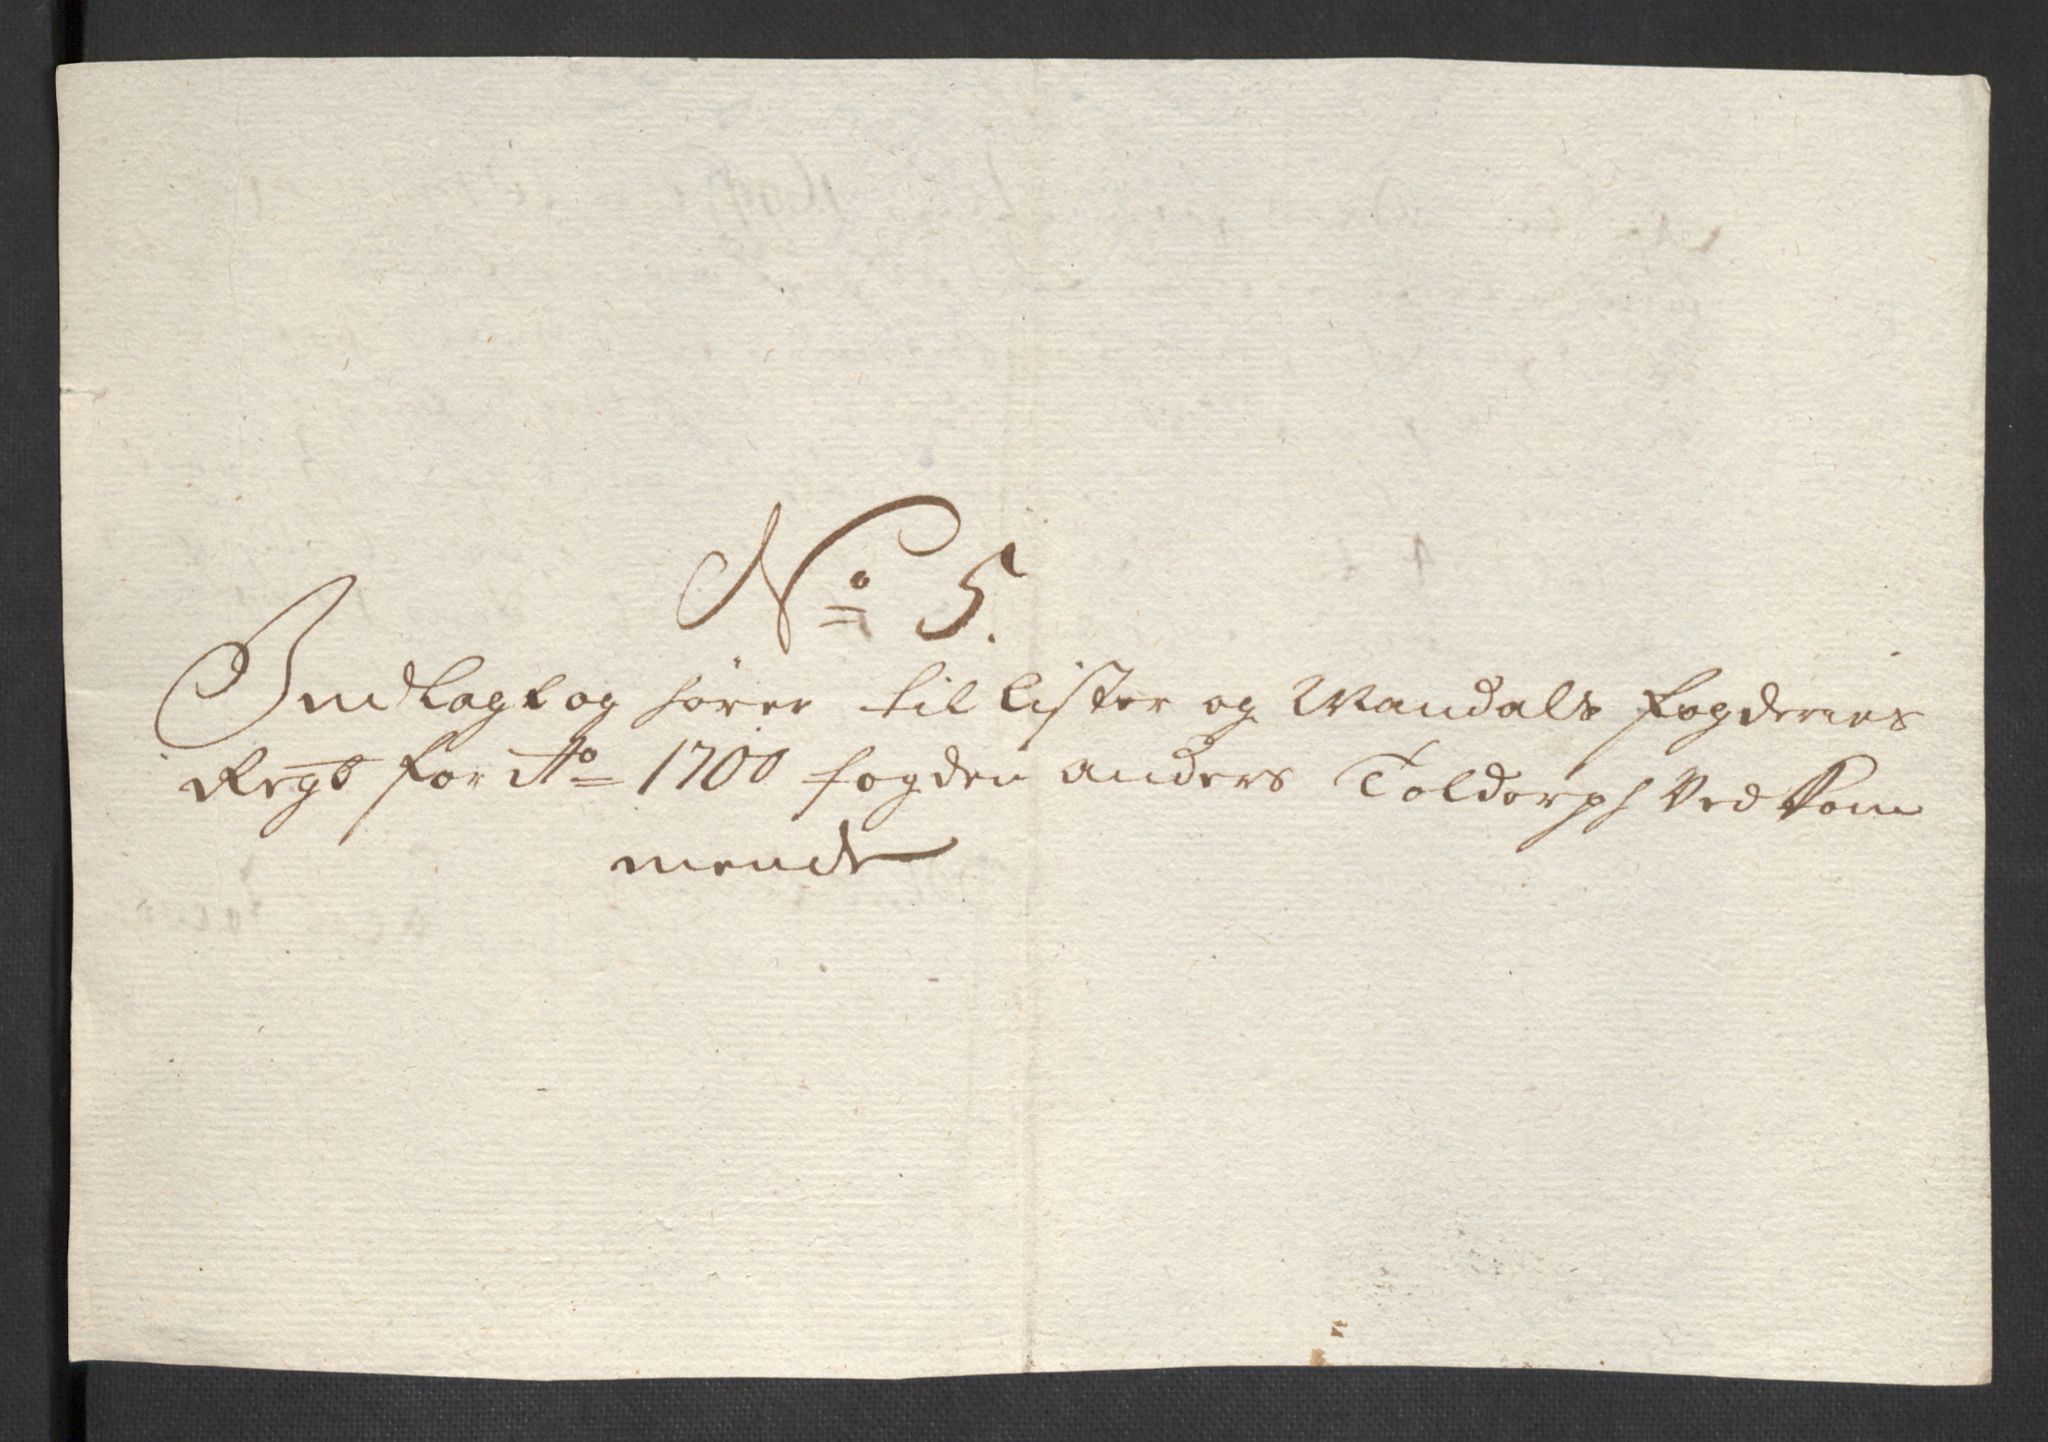 No 5.
Indlagt og hører til Lister og Mandals fogderies
Regb for Ao 1700 fogden Anders Toldorph Ved Kom
mende